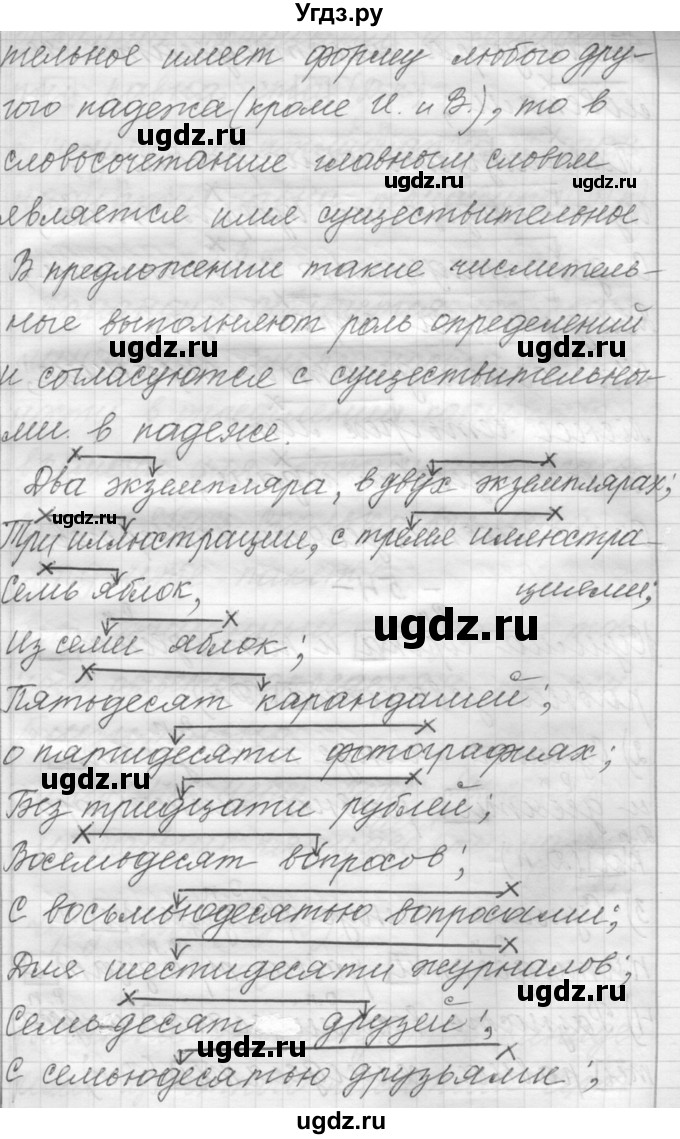 Угдз.ру
тельное имеет форму любого дру-
гого падежа (кроме И. и В.), то в
словосочетание главным словом
является имя существительное
В предложении такие числитель-
ные выполняют роль определений
и согласуются с существительны-
ми в падеже.
Два экземпляра, в двух экземплярах;
Три иллюстрации, с тремя иллюстра-
Семь яблок, циями;
Из семи яблок;
Пятьдесят карандашей;
о пятидесяти фотографиях;
Без тридцати рублей;
Восемьдесят вопросов;
С восьмьюдесятью вопросами;
Для шестидесяти журналов;
Семьдесят друзей;
С семьюдесятью друзьями;
ugdz.ru
ugdz.ru
ugdz.ru
ugdz.ru
ugdz.ru
ugdz.ru
ugdz.ru
ugdz.ru
ugdz.ru
ugdz.ru
ugdz.ru